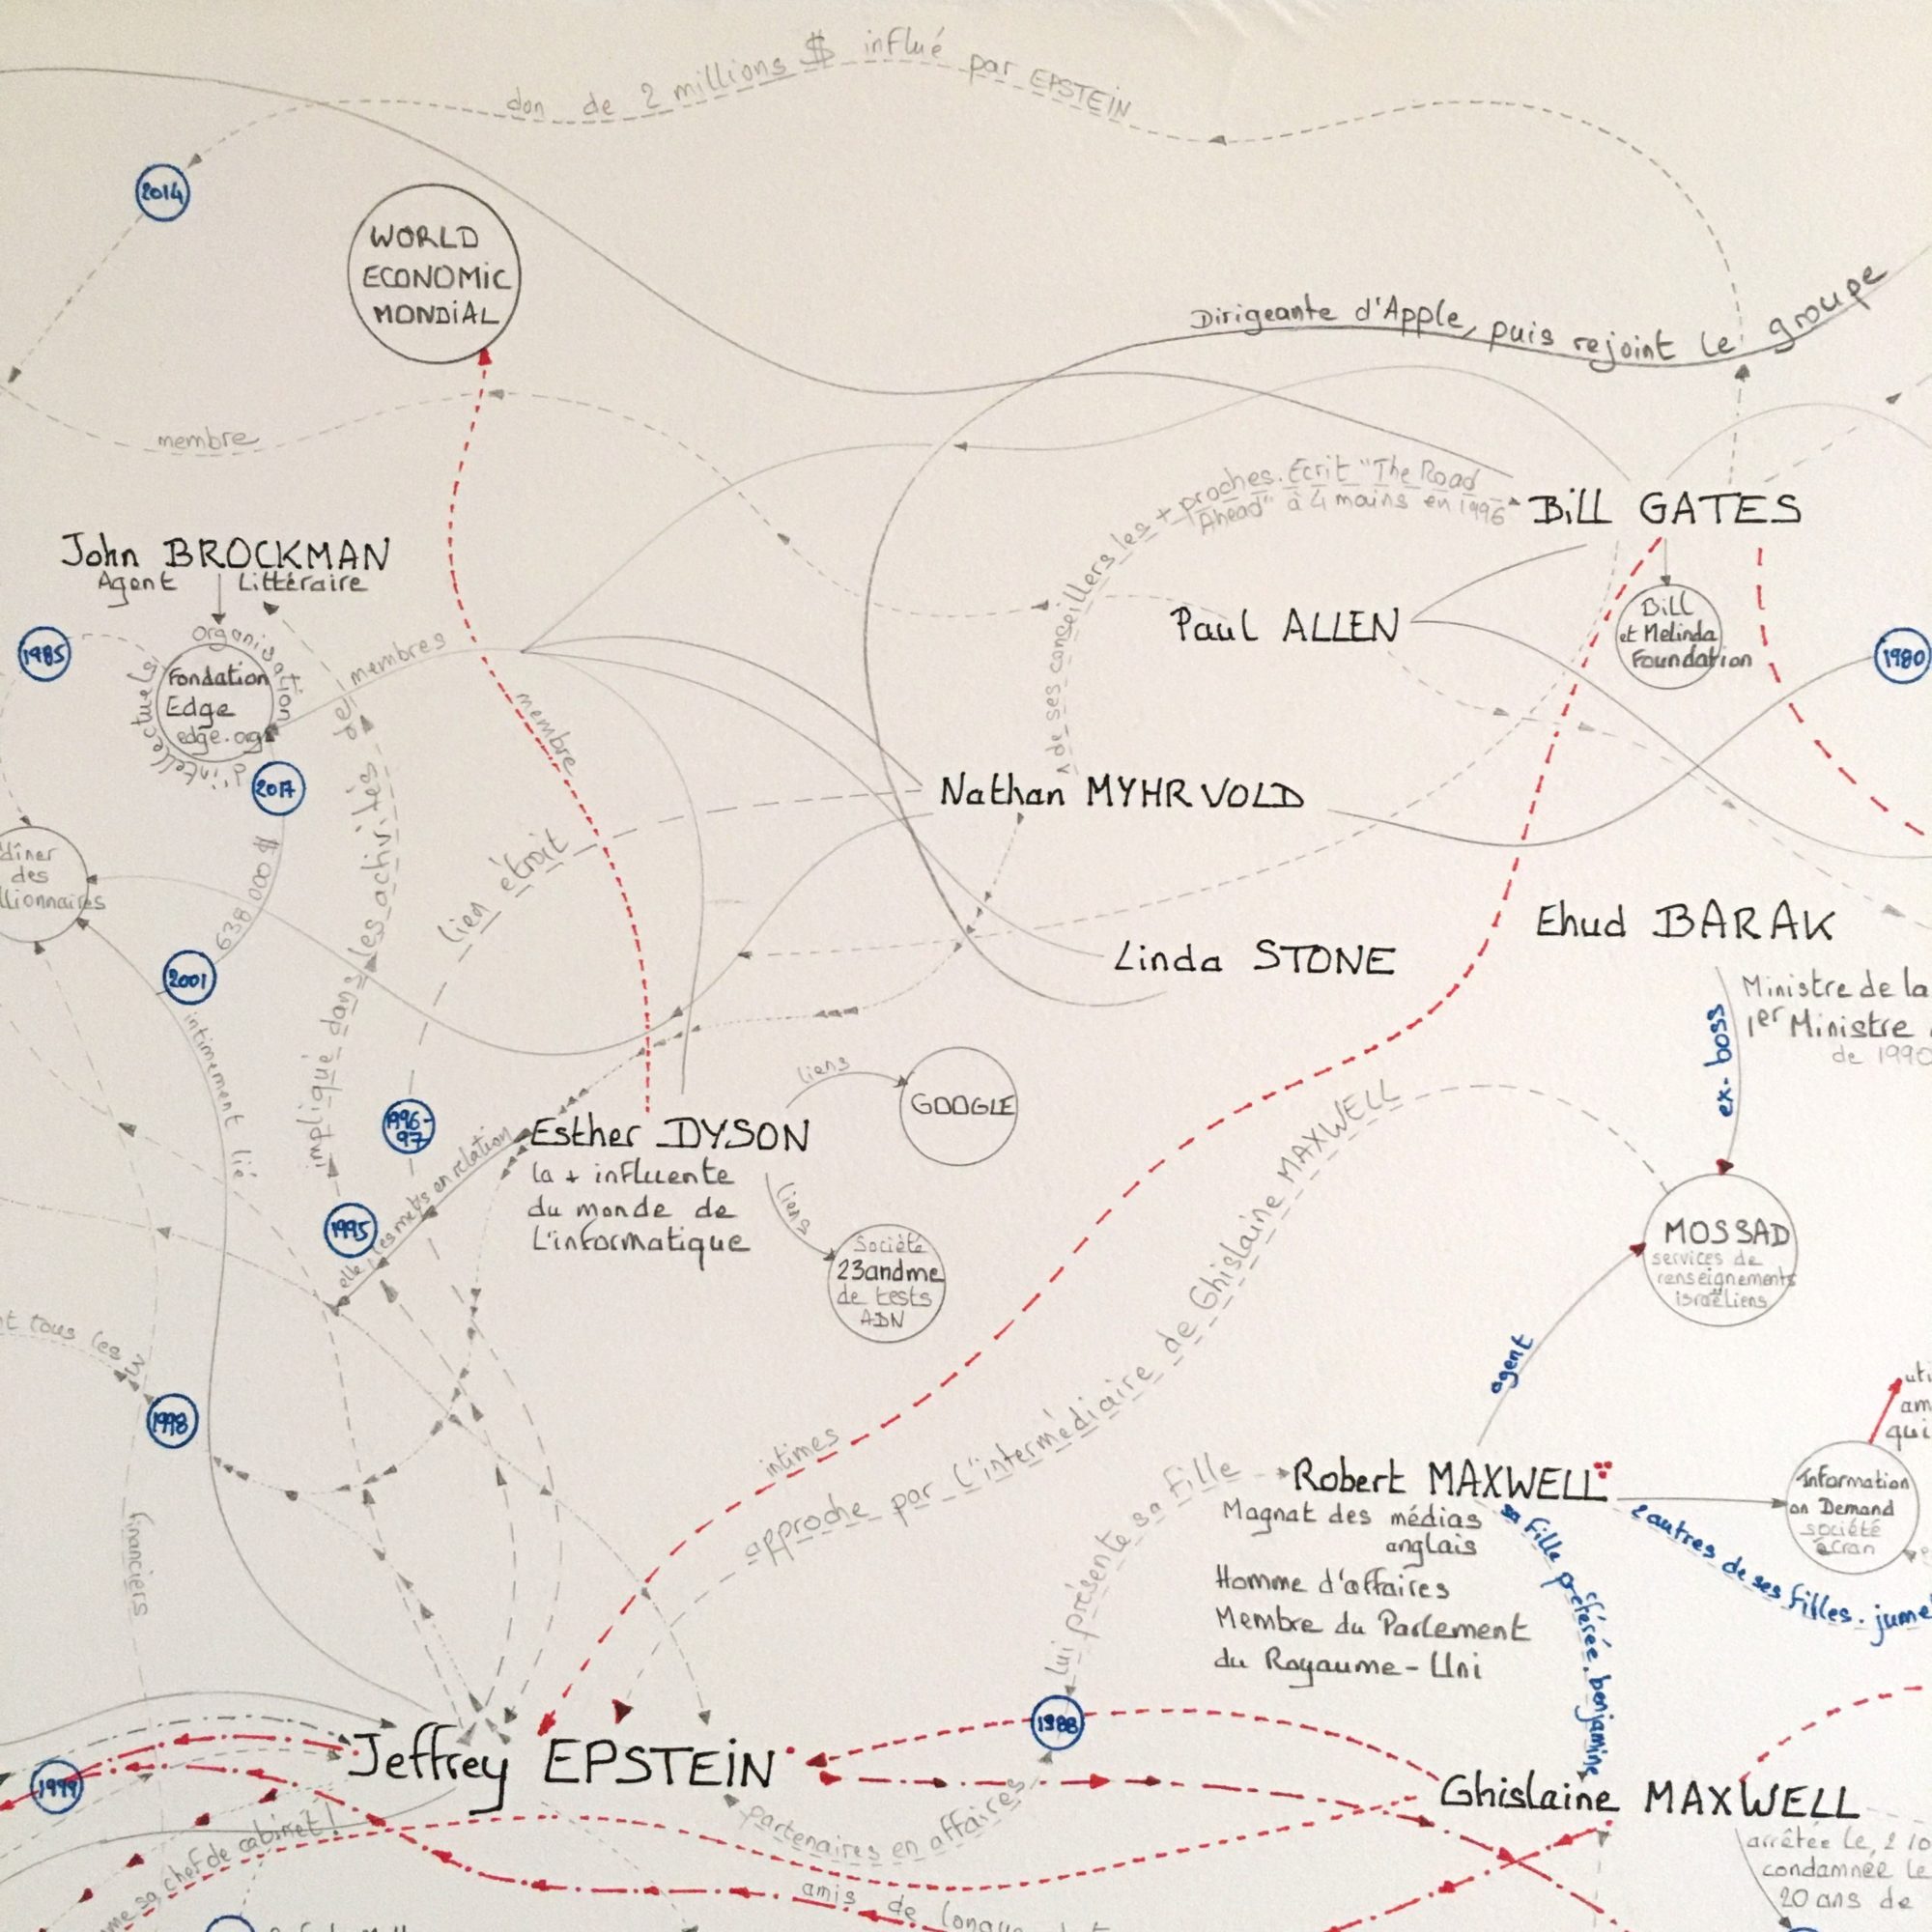 don de 2 millions $ influé par EPSTEIN
2014
WORLD
ECONOMIC
MONDIAL
Dirigeante d'Apple, puis rejoint le groupe
membre
1 de ses conseillers les + proches. Ecrit "The Road
Ahead" à 4 mains en 1996
Bill GATES
John BROCKMAN
Agent Littéraire
organisation
d'intellectuels
Fondation
Edge
edge.org
1985
membres
membre
Paul ALLEN
Bill
et Melinda
Foundation
1980
2017
638 000 $
Nathan MYHRVOLD
lien étroit
impliqué dans les activités de
dîner
des
llionnaires
2001
intimement lié
Linda STONE
Ehud BARAK
Ministre de la
1er Ministre
de 1990
ex-boss
liens
GOOGLE
1996-
97
Esther DYSON
la + influente
du monde de
l'informatique
liens
Société
23andme
de tests
ADN
1995
elle les mets en relation
MOSSAD
services de
renseignements
israëliens
agent
t tous les 3
1998
financiers
intimes
approche par l'intermédiaire de Ghislaine MAXWELL
lui présente sa fille
Robert MAXWELL
Magnat des médias
anglais
Homme d'affaires
Membre du Parlement
du Royaume-Uni
sa fille préférée, benjamine
2 autres de ses filles. jume
Information
on Demand
société
écran
uti
am
qui
1988
Jeffrey EPSTEIN
1999
partenaires en affaires
Ghislaine MAXWELL
arrêtée le, 2 10
condamnée le
20 ans de
me sa chef de cabinet!
amis de longue